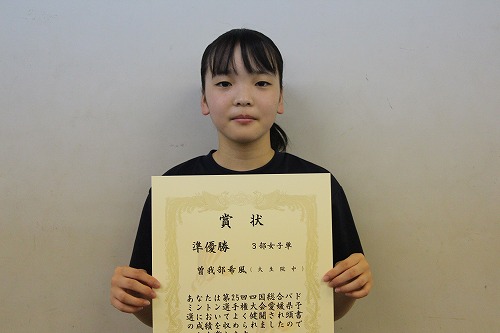 賞状
準優勝 3部女子単
曽我部希風(大生院中)
あなたは第25回四国総合バド
ミントン選手権大会愛媛県予
選においてよく健闘され頭書
の成績を収められましたので